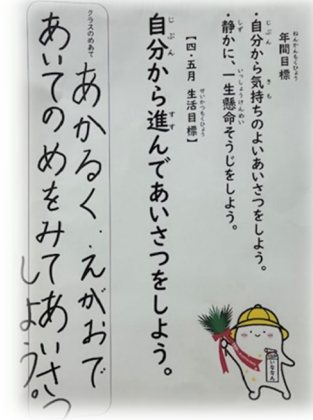 年間目標
・自分から気持ちのよいあいさつをしよう。
・静かに、一生懸命そうじをしよう。
【四・五月 生活目標】
自分から進んであいさつをしよう。
クラスのめあて
あかるく、えがおで
あいてのめをみてあいさつ
しよう。